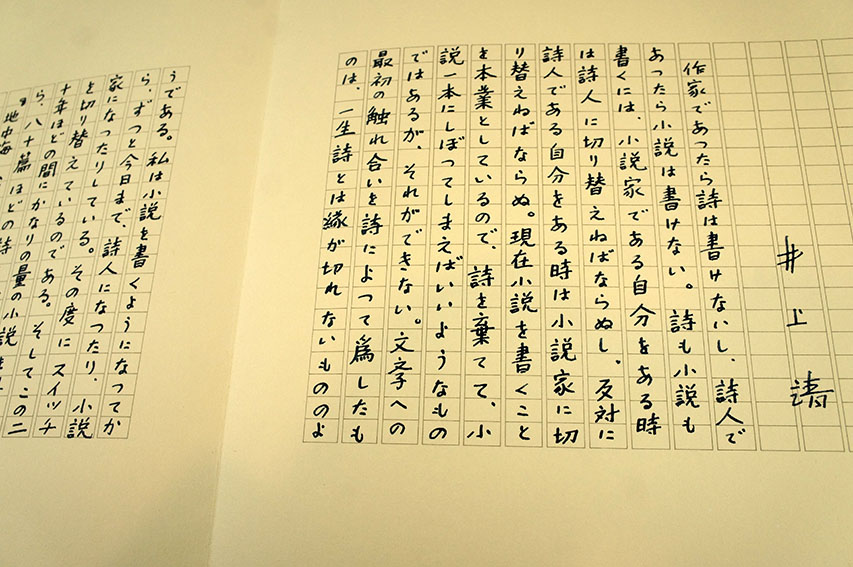 井上靖
作家であつたら詩は書けないし、詩人で
あつたら小説は書けない。詩も小説も
書くには、小説家である自分をある時
は詩人に切り替えねばならぬし、反対に
詩人である自分をある時は小説家に切
り替えねばならぬ。現在小説を書くこと
を本業としているので、詩を棄てて、小
説一本にしぼつてしまえばいいようなもの
ではあるが、それができない。文学への
最初の触れ合いを詩によつて為したも
のは、一生詩とは縁が切れないもののよ
うである。私は小説を書くようになつてか
ら、ずつと今日まで、詩人になつたり、小説
家になつたりしている。その度にスイッチ
を切り替えているのである。そしてこの二
十年ほどの間にかなりの量の小説
ら、八十篇ほどの詩
地中海